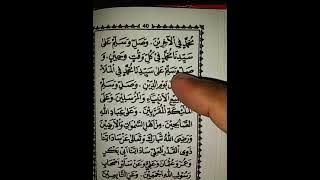 40
مُحَمَّدٍ فِي الْآخِرِينَ. وَصَلِّ وَسَلِّمْ عَلَى
سَيِّدِنَا مُحَمَّدٍ فِي كُلِّ وَقْتٍ وَحِينٍ. وَ
صَلِّ وَسَلِّمْ عَلَى سَيِّدِنَا مُحَمَّدٍ فِي الْمَلَأِ
يَوْمِ الدِّينِ. وَصَلِّ وَسَلِّمْ
الْأَنْبِيَاءِ وَالْمُرْسَلِينَ. وَعَلَى
الْمَلَائِكَةِ الْمُقَرَّبِينَ. وَعَلَى عِبَادِ اللهِ
الصَّالِحِينَ. مِنْ أَهْلِ السَّمٰوَاتِ وَالْأَرَضِينَ
وَرَضِيَ اللهُ
ذَوِي الْقَدْرِ الْجَلِيِّ سَادَاتِنَا أَبِي بَكْرٍ
وَعُمَرَ وَعُثْمَانَ وَعَلِيٍّ وَعَنْ سَائِرِ أَصْحَابِ
رَسُولِ اللهِ أَجْمَعِينَ. وَعَنِ التَّابِعِينَ